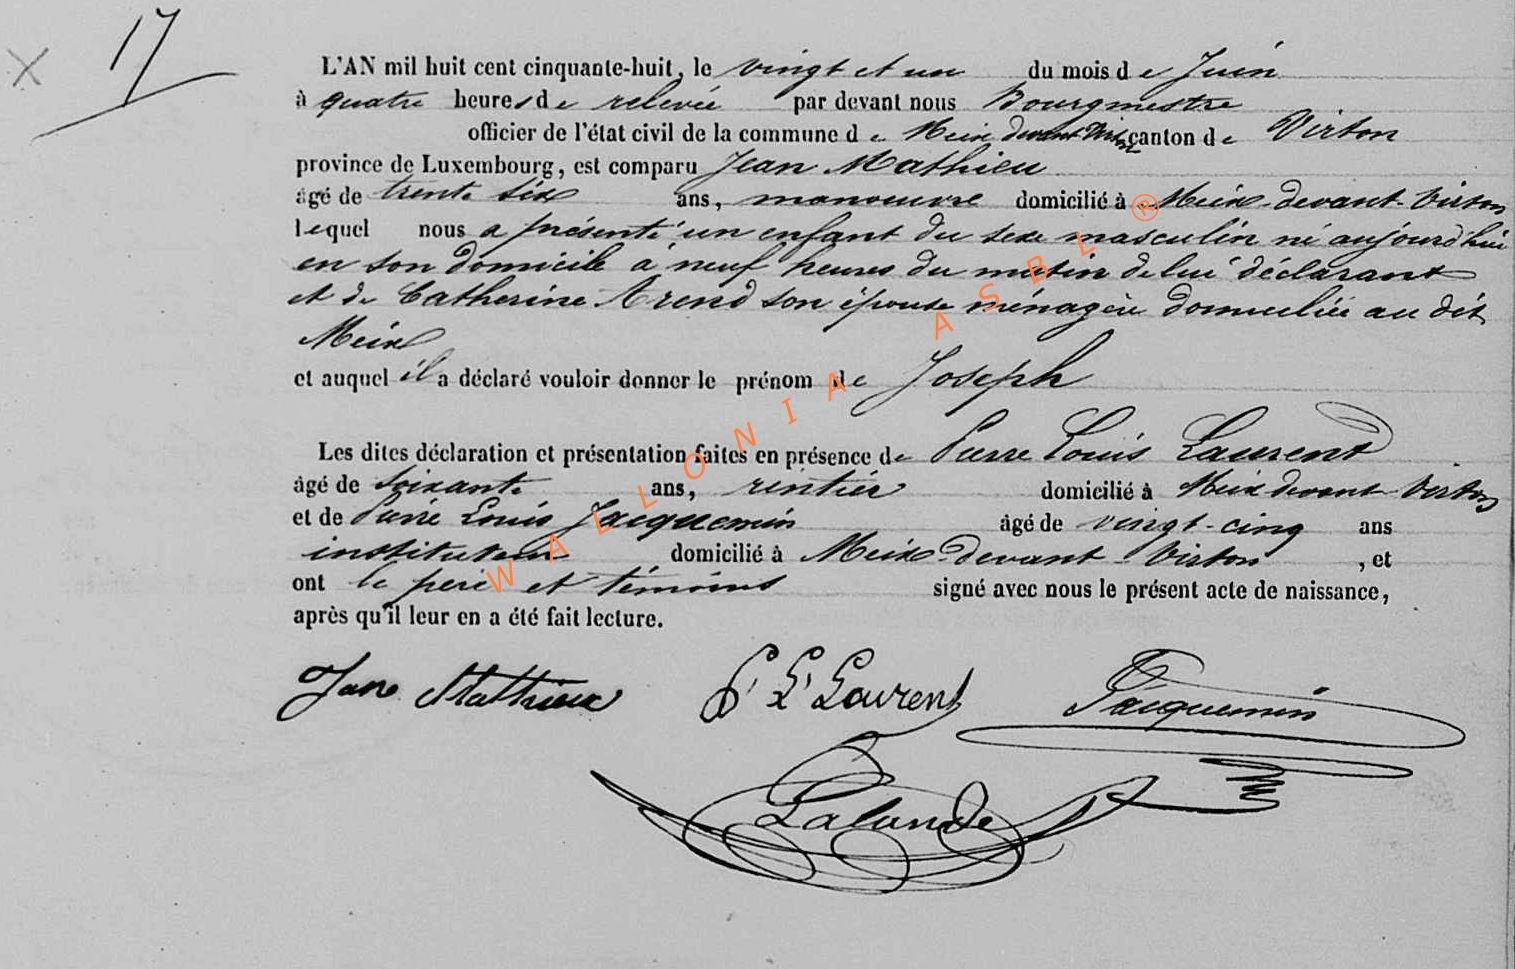 17
L'AN mil huit cent cinquante-huit, le vingt et un du mois de Juin
à quatre heures de relevée par devant nous Bourgmestre
officier de l'état civil de la commune de Meix devant Virton canton de Virton
province de Luxembourg, est comparu Jean Mathieu
âgé de trente six ans, manoeuvre domicilié à Meix-devant-Virton
lequel nous a présenté un enfant du sexe masculin né aujourd'hui
en son domicile à neuf heures du matin de lui déclarant
et de Catherine Arend son épouse ménagère domiciliée au dit
Meix
et auquel il a déclaré vouloir donner le prénom de Joseph
Les dites déclaration et présentation faites en présence de Pierre Louis Laurent
âgé de soixante ans, rentier domicilié à Meix devant Virton
et de Pierre Louis Jacquemin âgé de vingt-cinq ans
instituteur domicilié à Meix-devant-Virton, et
ont le père et témoins signé avec nous le présent acte de naissance,
après qu'il leur en a été fait lecture.
Jean Mathieu P L Laurent Jacquemin
Lalande
WALLONIA ASBL ®